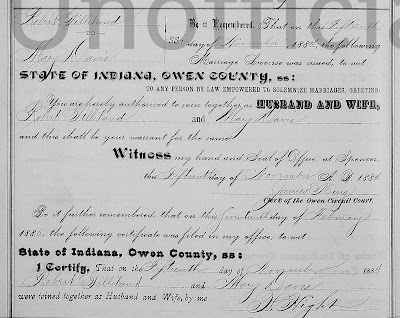 Unofficial
Robert Gilliland
Be it Remembered, That on this Fifteenth
to 338 day of November 1884, the following
Mary Davis
Marriage License was issued, to wit:
STATE OF INDIANA, OWEN COUNTY, ss:
TO ANY PERSON BY LAW EMPOWERED TO SOLEMNIZE MARRIAGES, GREETING:
You are hereby authorized to join together as HUSBAND AND WIFE,
Robert Gilliland and Mary Davis
and this shall be your warrant for the same.
Witness my hand and Seal of Office, at Spencer,
this Fifteenth day of November A. D. 1884
James
Clerk of the Owen Circuit Court.
Be it further remembered, that on this day of February
1885, the following certificate was filed in my office, to wit:
State of Indiana, Owen County, ss:
I Certify, That on the Fifteenth day of November 1884
Robert Gilliland and Mary Davis
were joined together as Husband and Wife, by me